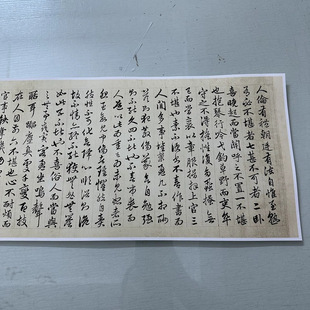 人倫有禮朝廷有法自惟至熟
有必不堪者七甚不可者二卧
喜晚起而當關呼之不置一不堪
也抱琴行吟弋釣草野而吏卒
守之不得摇性復多虱把搔無
已而當裹以章服揖拜上官三
不堪也素不便書又不喜作書而
人間多事堆案盈几不相酬
答則犯教傷義欲自勉强
則不能久四不堪也不喜弔喪而
人道以此為重已為未見恕者所
怨至欲見中傷者雖懼然自責
然性不可化欲降心順俗則詭
故不情亦終不能獲無咎無譽
如此五不堪也不喜俗人而當與
之共事或賓客盈坐鳴聲
聒耳囂塵臭處千變百技
在人目前六不堪也心不耐煩而
官事鞅掌